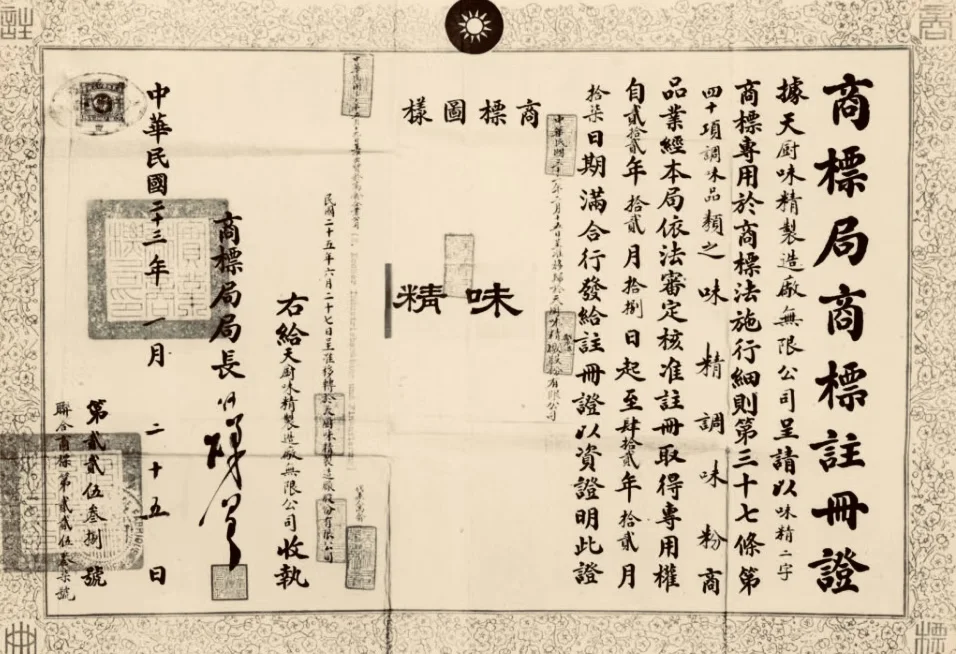 商標局商標註冊證
據天厨味精製造廠無限公司呈請以味精二字
商標專用於商標法施行細則第三十七條第
四十項調味品類之味精調味粉商
品業經本局依法審定核准註冊取得專用權
自貳拾貳年拾貳月拾捌日起至肆拾貳年拾貳月
拾柒日期滿合行發給註冊證以資證明此證
商標圖樣
味精
民國二十五年六月二十七日呈准移轉於天厨味精製造廠股份有限公司
右給天厨味精製造廠無限公司收執
商標局局長
中華民國二十三年一月二十五日
第貳貳伍叁捌號